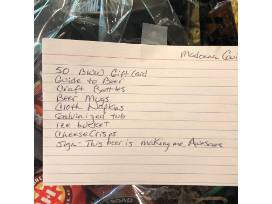 Madonna
50 BWW Gift Card
Guide to Beer
Draft Bottles
Beer Mugs
Cloth Napkins
Galvanized tub
Ice bucket
Cheese Crisps
Sign - This beer is making me Awesome